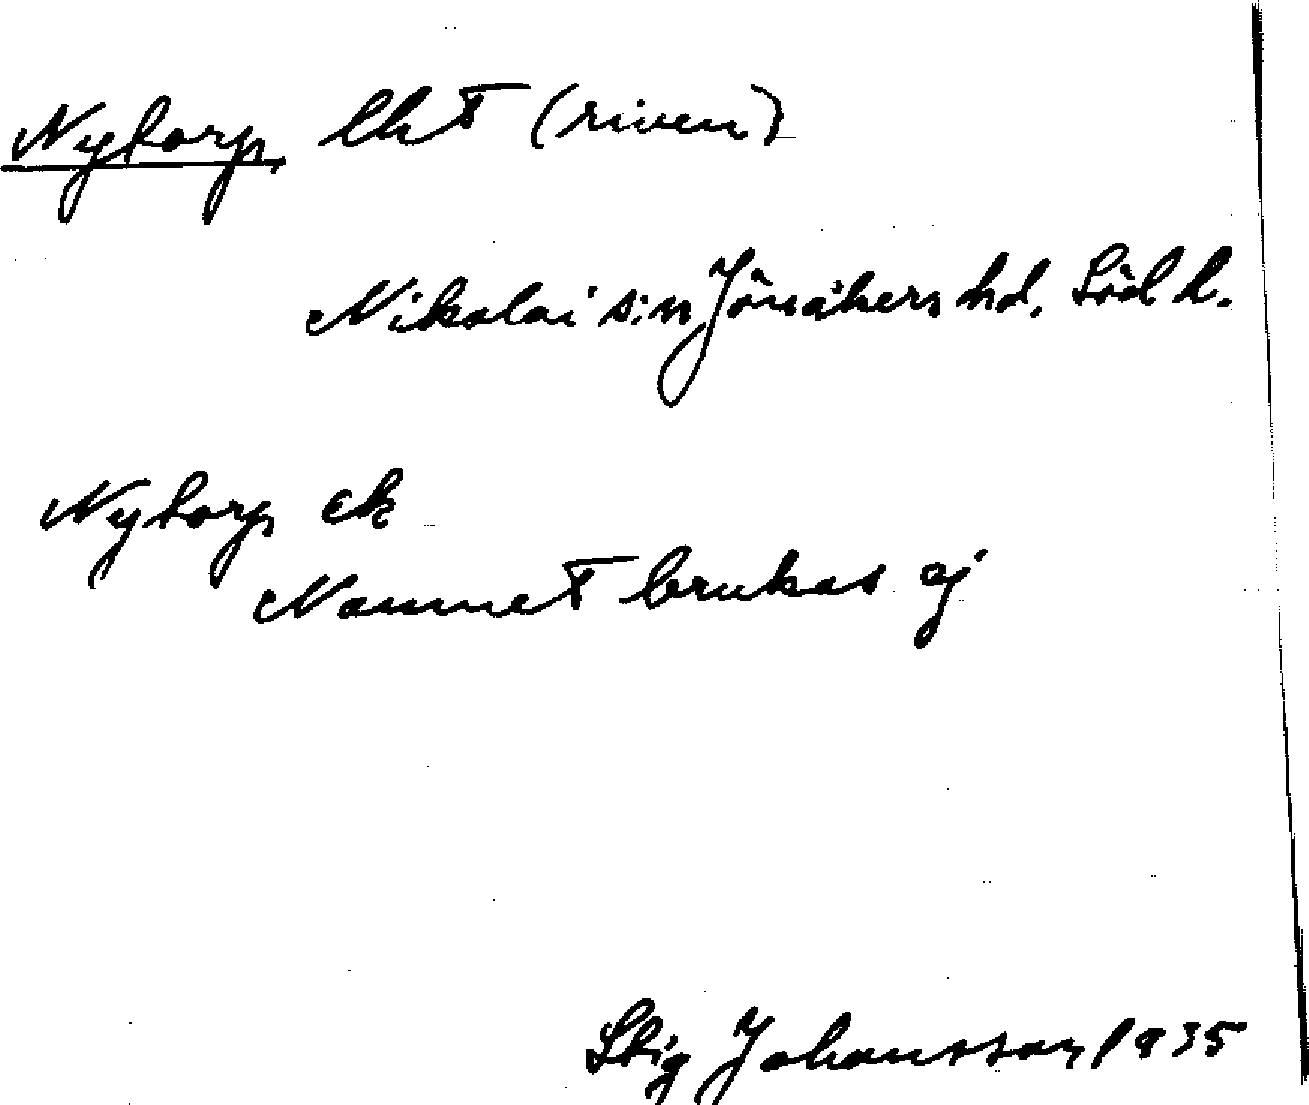 Nytorp, lht (riven)
Nikolai s:n Jönåkers hd, Södl.
Nytorp ek
Namnet brukas ej
Stig Johansson 1935